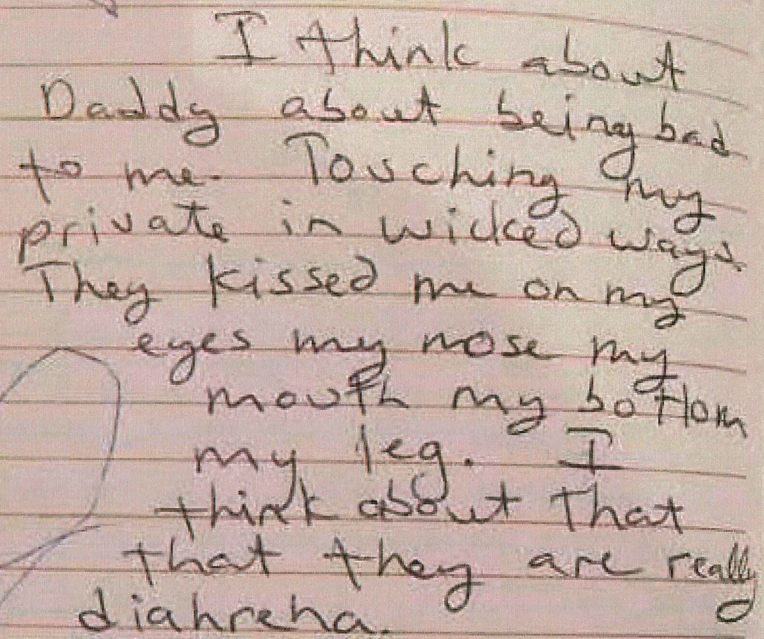 I think about
Daddy about being bad
to me. Touching my
private in wicked ways.
They kissed me on my
eyes my nose my
mouth my bottom
my leg. I
think about that
that they are really
diahreha.